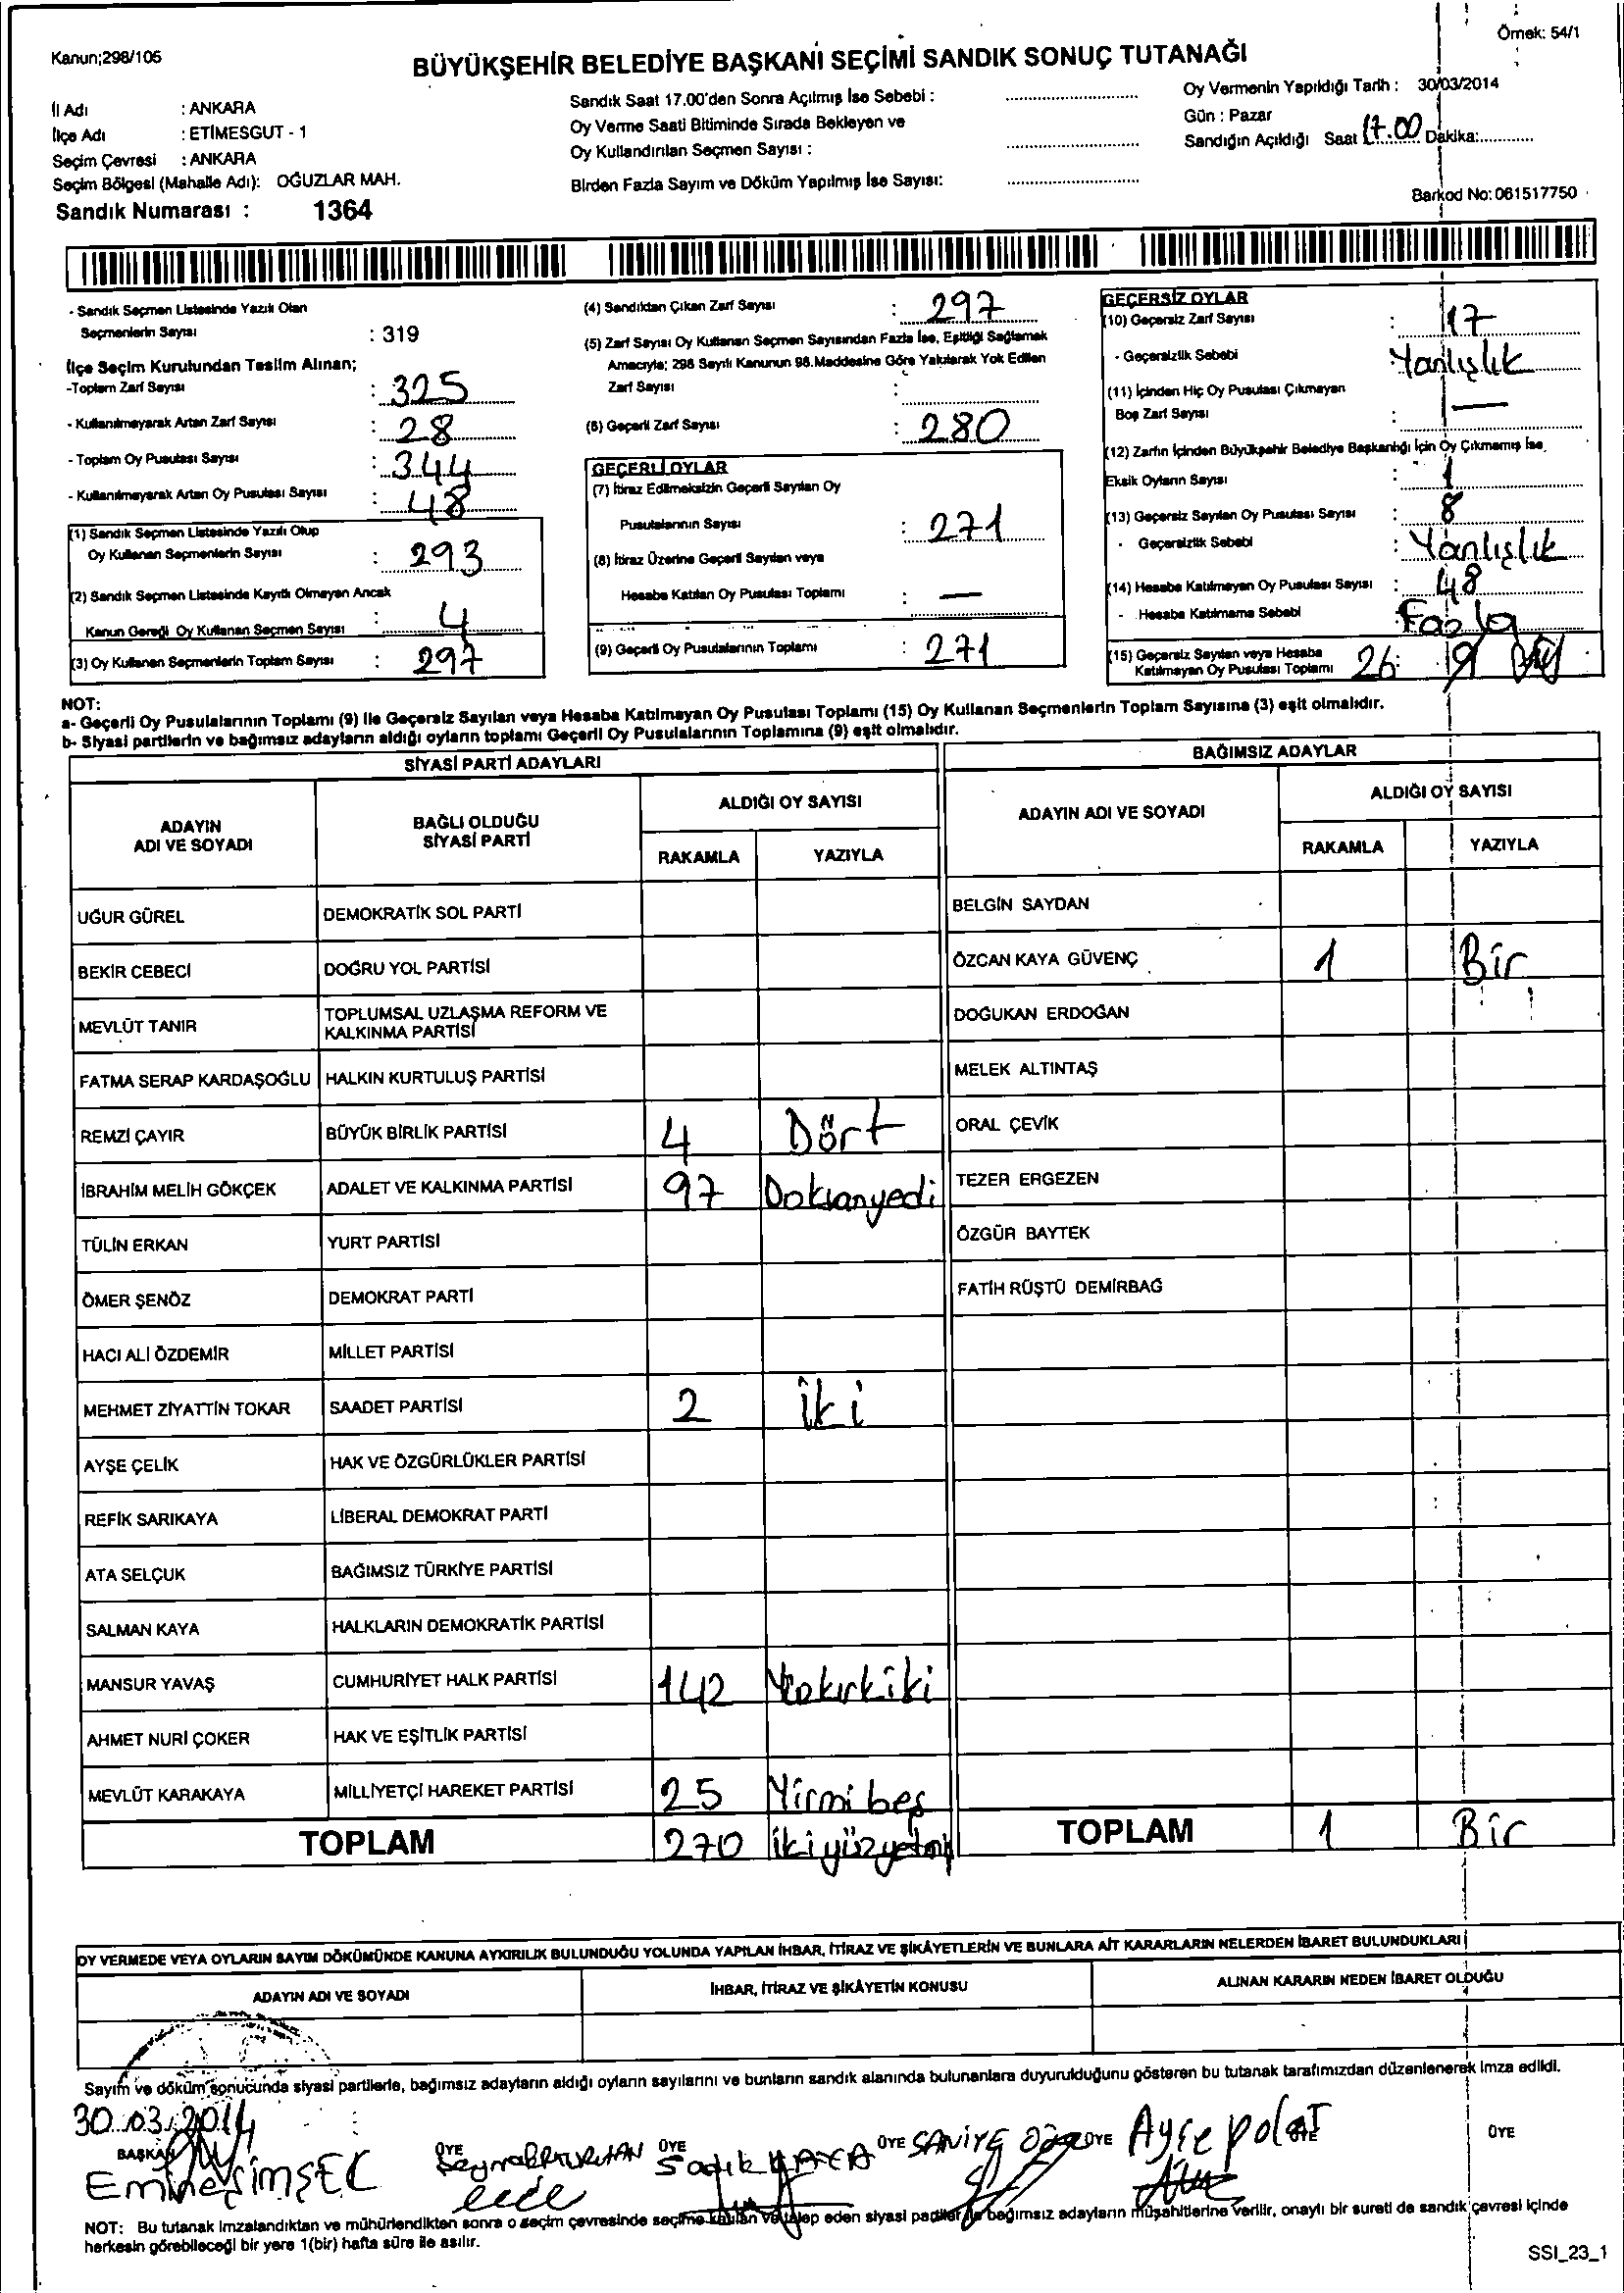 Kanun;298/105
Örnek: 54/1
BÜYÜKŞEHİR BELEDİYE BAŞKANI SEÇİMİ SANDIK SONUÇ TUTANAĞI
İl Adı : ANKARA
İlçe Adı : ETİMESGUT - 1
Seçim Çevresi : ANKARA
Seçim Bölgesi (Mahalle Adı): OĞUZLAR MAH.
Sandık Numarası : 1364
Sandık Saat 17.00'den Sonra Açılmış İse Sebebi :
Oy Verme Saati Bitiminde Sırada Bekleyen ve
Oy Kullandırılan Seçmen Sayısı :
Birden Fazla Sayım ve Döküm Yapılmış İse Sayısı:
Oy Vermenin Yapıldığı Tarih : 30/03/2014
Gün : Pazar
Sandığın Açıldığı Saat 17.00 Dakika:
Barkod No: 061517750
- Sandık Seçmen Listesinde Yazılı Olan
Seçmenlerin Sayısı : 319
İlçe Seçim Kurulundan Teslim Alınan;
-Toplam Zarf Sayısı : 325
- Kullanılmayarak Artan Zarf Sayısı : 28
- Toplam Oy Pusulası Sayısı : 344
- Kullanılmayarak Artan Oy Pusulası Sayısı : 48
(1) Sandık Seçmen Listesinde Yazılı Olup
Oy Kullanan Seçmenlerin Sayısı : 293
(2) Sandık Seçmen Listesinde Kayıtlı Olmayan Ancak
Kanun Gereği Oy Kullanan Seçmen Sayısı : 4
(3) Oy Kullanan Seçmenlerin Toplam Sayısı : 297
(4) Sandıktan Çıkan Zarf Sayısı : 297
(5) Zarf Sayısı Oy Kullanan Seçmen Sayısından Fazla İse, Eşitliği Sağlamak
Amacıyla; 298 Sayılı Kanunun 98.Maddesine Göre Yakılarak Yok Edilen
Zarf Sayısı :
(6) Geçerli Zarf Sayısı : 280
GEÇERLİ OYLAR
(7) İtiraz Edilmeksizin Geçerli Sayılan Oy
Pusulalarının Sayısı : 271
(8) İtiraz Üzerine Geçerli Sayılan veya
Hesaba Katılan Oy Pusulası Toplamı : —
(9) Geçerli Oy Pusulalarının Toplamı : 271
GEÇERSİZ OYLAR
(10) Geçersiz Zarf Sayısı : 17
- Geçersizlik Sebebi : Yanlışlık
(11) İçinden Hiç Oy Pusulası Çıkmayan
Boş Zarf Sayısı : —
(12) Zarfın İçinden Büyükşehir Belediye Başkanlığı İçin Oy Çıkmamış İse,
Eksik Oyların Sayısı : 1
(13) Geçersiz Sayılan Oy Pusulası Sayısı : 8
- Geçersizlik Sebebi : Yanlışlık
(14) Hesaba Katılmayan Oy Pusulası Sayısı : 48
- Hesaba Katılmama Sebebi : Fazla
(15) Geçersiz Sayılan veya Hesaba
Katılmayan Oy Pusulası Toplamı 26 : 9
NOT:
a- Geçerli Oy Pusulalarının Toplamı (9) ile Geçersiz Sayılan veya Hesaba Katılmayan Oy Pusulası Toplamı (15) Oy Kullanan Seçmenlerin Toplam Sayısına (3) eşit olmalıdır.
b- Siyasi partilerin ve bağımsız adayların aldığı oyların toplamı Geçerli Oy Pusulalarının Toplamına (9) eşit olmalıdır.
SİYASİ PARTİ ADAYLARI
BAĞIMSIZ ADAYLAR
ADAYIN ADI VE SOYADI
BAĞLI OLDUĞU SİYASİ PARTİ
ALDIĞI OY SAYISI
RAKAMLA YAZIYLA
ADAYIN ADI VE SOYADI
ALDIĞI OY SAYISI
RAKAMLA YAZIYLA
UĞUR GÜREL DEMOKRATİK SOL PARTİ
BELGİN SAYDAN
BEKİR CEBECİ DOĞRU YOL PARTİSİ
ÖZCAN KAYA GÜVENÇ 1 Bir
MEVLÜT TANIR TOPLUMSAL UZLAŞMA REFORM VE KALKINMA PARTİSİ
DOĞUKAN ERDOĞAN
FATMA SERAP KARDAŞOĞLU HALKIN KURTULUŞ PARTİSİ
MELEK ALTINTAŞ
REMZİ ÇAYIR BÜYÜK BİRLİK PARTİSİ 4 Dört
ORAL ÇEVİK
İBRAHİM MELİH GÖKÇEK ADALET VE KALKINMA PARTİSİ 97 Doksanyedi
TEZER ERGEZEN
TÜLİN ERKAN YURT PARTİSİ
ÖZGÜR BAYTEK
ÖMER ŞENÖZ DEMOKRAT PARTİ
FATİH RÜŞTÜ DEMİRBAĞ
HACI ALİ ÖZDEMİR MİLLET PARTİSİ
MEHMET ZİYATTİN TOKAR SAADET PARTİSİ 2 İki
AYŞE ÇELİK HAK VE ÖZGÜRLÜKLER PARTİSİ
REFİK SARIKAYA LİBERAL DEMOKRAT PARTİ
ATA SELÇUK BAĞIMSIZ TÜRKİYE PARTİSİ
SALMAN KAYA HALKLARIN DEMOKRATİK PARTİSİ
MANSUR YAVAŞ CUMHURİYET HALK PARTİSİ 142
AHMET NURİ ÇOKER HAK VE EŞİTLİK PARTİSİ
MEVLÜT KARAKAYA MİLLİYETÇİ HAREKET PARTİSİ 25 Yirmi beş
TOPLAM 270 ikiyüzyetmiş
TOPLAM 1 Bir
OY VERMEDE VEYA OYLARIN SAYIM DÖKÜMÜNDE KANUNA AYKIRILIK BULUNDUĞU YOLUNDA YAPILAN İHBAR, İTİRAZ VE ŞİKÂYETLERİN VE BUNLARA AİT KARARLARIN NELERDEN İBARET BULUNDUKLARI
ADAYIN ADI VE SOYADI
İHBAR, İTİRAZ VE ŞİKÂYETİN KONUSU
ALINAN KARARIN NEDEN İBARET OLDUĞU
Sayım ve döküm sonucunda siyasi partilerle, bağımsız adayların aldığı oyların sayılarını ve bunların sandık alanında bulunanlara duyurulduğunu gösteren bu tutanak tarafımızdan düzenlenerek imza edildi.
30.03.2014
BAŞKAN ÜYE ÜYE ÜYE ÜYE ÜYE ÜYE
Emine ŞİMŞEK Sadık KAYA SANİYE Ayşe polat
NOT: Bu tutanak imzalandıktan ve mühürlendikten sonra o seçim çevresinde seçime katılan ve talep eden siyasi partiler ile bağımsız adayların müşahitlerine verilir, onaylı bir sureti de sandık çevresi içinde
herkesin görebileceği bir yere 1(bir) hafta süre ile asılır.
SSI_23_1